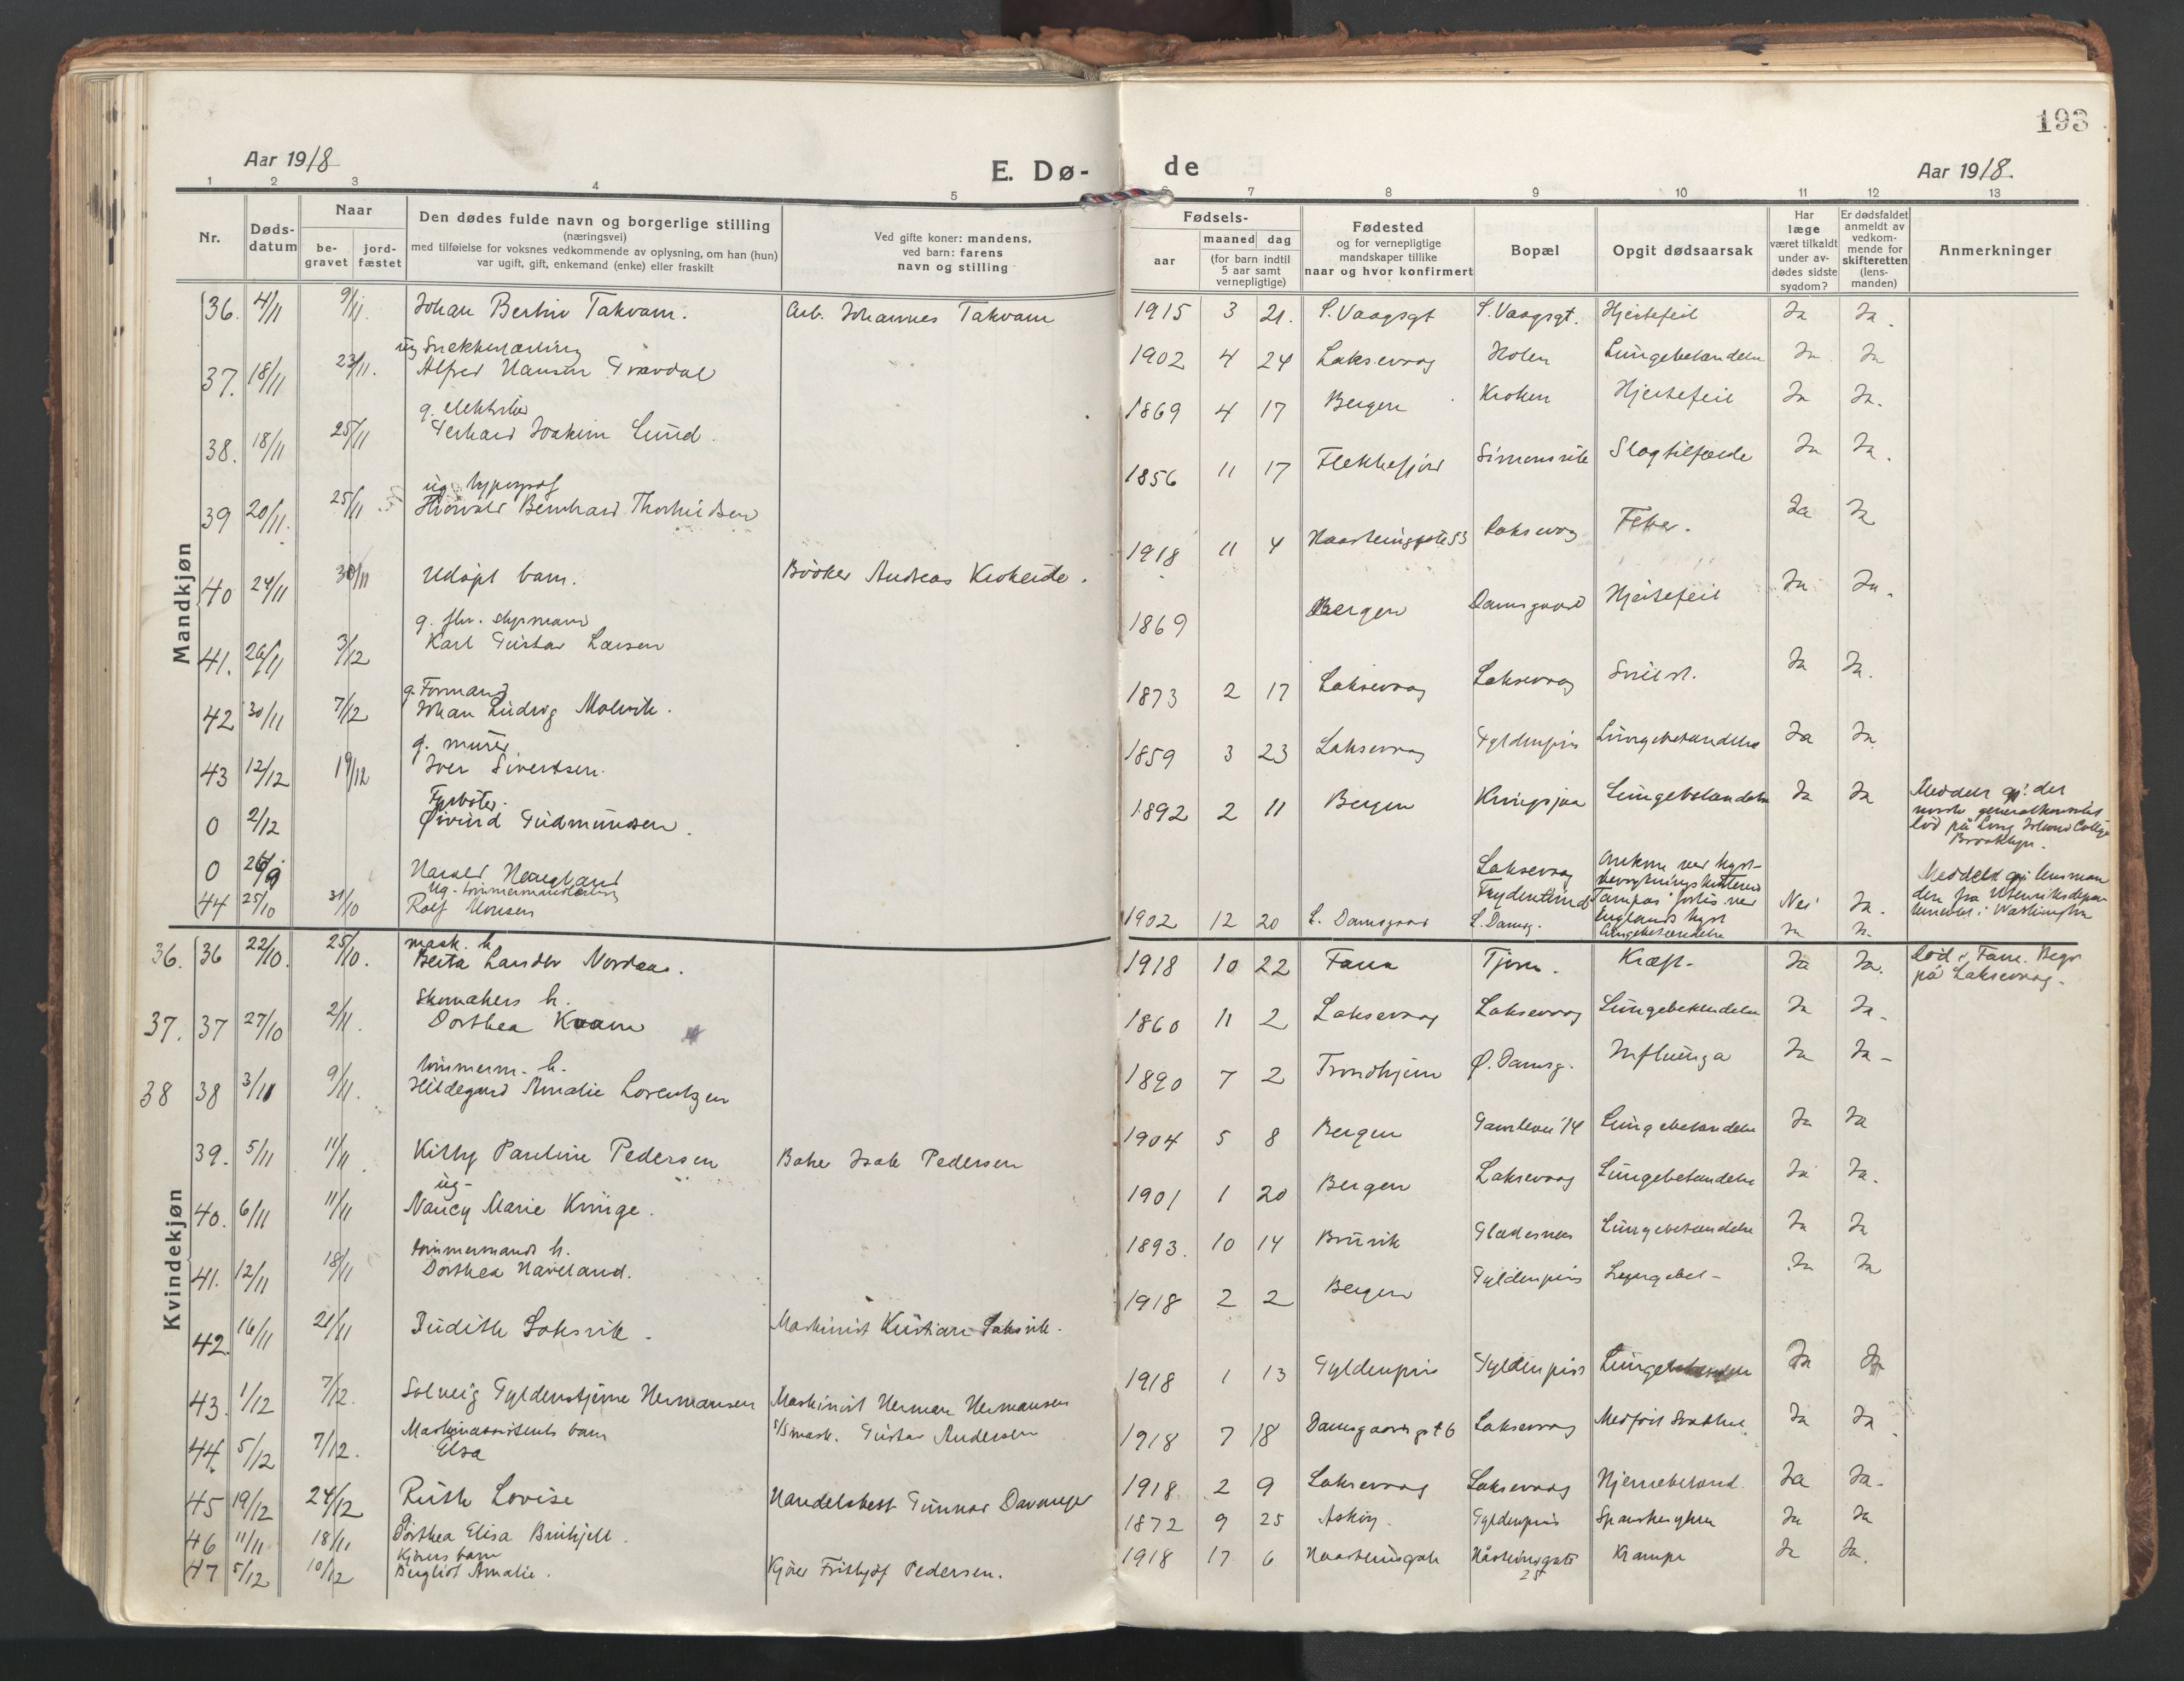 193
Aar 1918
E. Dø-de
Aar 1918.
1 2 3 4 5 6 7 8 9 10 11 12 13
Nr.
Døds-datum
Naar
be-gravet
jord-fæstet
Den dødes fulde navn og borgerlige stilling
(næringsvei)
med tilføielse for voksnes vedkommende av oplysning, om han (hun)
var ugift, gift, enkemand (enke) eller fraskilt
Ved gifte koner: mandens,
ved barn: farens
navn og stilling
Fødsels-
aar
maaned dag
(for barn indtil
5 aar samt
vernepligtige)
Fødested
og for vernepligtige
mandskaper tillike
naar og hvor konfirmert
Bopæl
Opgit dødsaarsak
Har
læge
været tilkaldt
under av-
dødes sidste
sygdom?
Er dødsfaldet
anmeldt av
vedkom-
mende for
skifteretten
(lens-
manden)
Anmerkninger
Mandkjøn
36. 4/11 9/11. Johan Bertin Takvam. Arb. Johannes Takvam 1915 3 21. S. Vaagsgt S. Vaagsgt. Hjertefeil Ja Ja.
ug Snekkerlærling
37. 18/11 23/11. Alfred Hansen 1902 4 24 Laksevaag Holen Lungebetændelse Ja Ja
g. elektriker
38. 18/11 25/11 Gerhard Joakim Lund. 1869 4 17 Bergen Kroken Hjertefeil Ja Ja.
ug typograf
39 20/11. 25/11 Thorvald Bernhard Thorkildsen 1856 11 17 Flekkefjord Simonsvik Slagtilfælde Ja Ja.
40 24/11 30/11 Udøpt barn. Bøker Andreas Krokeide. 1918 11 4 53 Laksevaag Ja Ja
g. fhv. styrmand
41. 26/11 3/12 Karl Gustav Larsen 1869 Bergen Damsgaard Hjertefeil Ja Ja.
g. Formand
42 30/11 7/12 Johan Ludvig Molvik. 1873 2 17 Laksevaag Laksevaag Ja Ja.
g. murer
43 12/12 19/12 Iver Sivertsen. 1859 3 23 Laksevaag Gyldenpris Lungebetændelse Ja Ja
Fyrbøter.
0 2/12 Øivind Gudmundsen. 1892 2 11 Bergen Kringsjaa Lungebetændelse Ja Ja Meddelt gj. det
norske generalkonsulat
død på Long Island College
Brooklyn.
0 26/9 Harald Haugland Laksevaag
Frydenlund Tampas forlis ved
Englands kyst Nei Ja. Meddelt gj. lensman
den fra Utenriksdepar
tementet i Washington
Ug. tømmermandslærling
44 25/10 31/10 Rolf Monsen 1902 12 20 L. Damsgaard L. Damsg. Lungebetændelse Ja Ja.
Kvindekjøn
mask. h.
36. 36 22/10. 25/10. Berta Nordaas. 1918 10 22 Fana Tjern. Kræft Ja Ja. Død i Fane. Begr
på Laksevaag.
Skomakers h.
37. 37 27/10 2/11. Dorthea Kvam 1860 11 2 Laksevaag Laksevaag Lungebetændelse Ja Ja.
tømmerm. h.
38 38 3/11 9/11. Hildegard Amalie Lorentzen 1890 7 2 Trondhjem Ø. Damsg. Influenza Ja Ja
39. 5/11 11/11. Kitty Pauline Pedersen Baker Isak Pedersen 1904 5 8 Bergen Lungebetændelse Ja Ja
ug.
40. 6/11 11/11 Nancy Marie Kringe. 1901 1 20 Bergen Laksevaag Lungebetændelse Ja Ja.
tømmermands h.
41. 12/11 18/11 Dorthea Haveland. 1893. 10 14 Bruvik Lungebetændelse Ja Ja
42. 16/11 21/11 Judith Laksvik. Maskinist Kristian Laksvik. 1918 2 2 Bergen Gyldenpris Lungebet. Ja Ja
43. 1/12 7/12. Solveig Gyldenstjerne Hermansen Maskinist Herman Hermansen 1918 1 13 Gyldenpris Gyldenpris Lungebetændelse Ja Ja
Maskinassistents barn
44. 5/12 7/12. Elsa mask. Gustav Andersen 1918 7 18 Damsgaardsgt 6 Laksevaag Medfødt Svakhet Ja Ja.
45 19/12 24/12 Ruth Lovise Handelsbest Gunnar Davanger 1918 2 9 Laksevaag Laksevaag Hjernebetænd. Ja Ja.
46 11/11 18/11 Dorthea Elisa 1872 9 25 Askøy. Gyldenpris Spanskesyken Ja Ja
Kjørers barn
47 5/12 10/12 Bergliot Amalie. Kjører Frithjof Pedersen. 1918 17 6 25 Krampe Ja Ja.